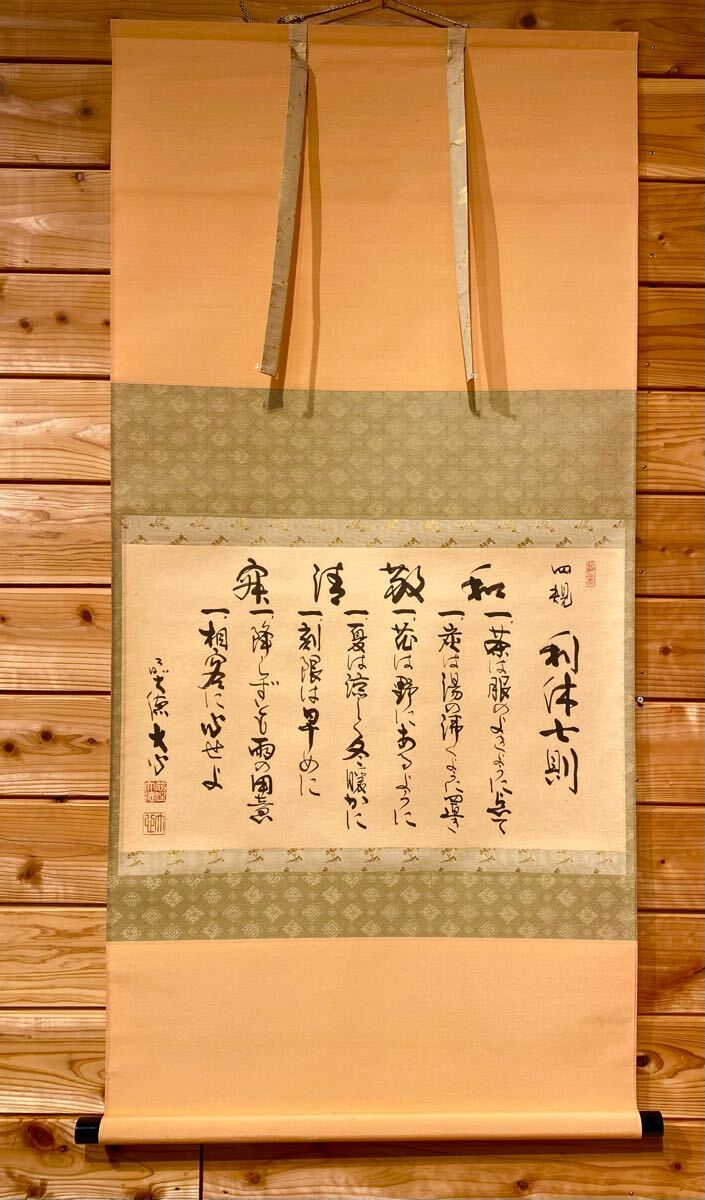 四規
利休七則
和
一、茶は服のよきように点て
一、炭は湯の沸くように置き
敬
一、花は野にあるように
一、夏は涼しく冬暖かに
清
一、刻限は早めに
一、降らずとも雨の用意
寂
一、相客に心せよ